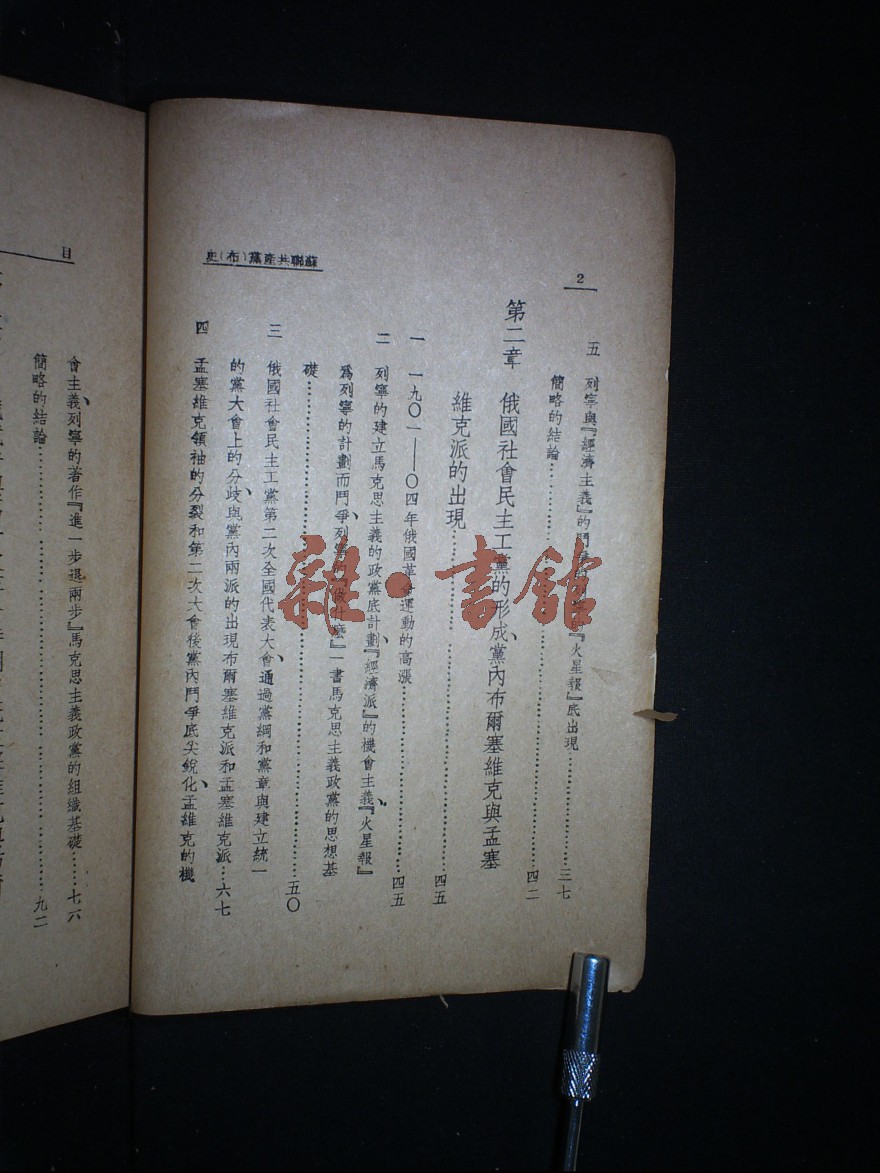 2
蘇聯共產黨(布)史
五 列寧與『經濟主義』的鬥 『火星報』底出現……三七
簡略的結論……四二
第二章 俄國社會民主工黨的形成、黨內布爾塞維克與孟塞
維克派的出現……四五
一 一九〇一——〇四年俄國革命運動的高漲……四五
二 列寧的建立馬克思主義的政黨底計劃、『經濟派』的機會主義、『火星報』
爲列寧的計劃而鬥爭、列寧的『做什麽』一書馬克思主義政黨的思想基
礎……五〇
三 俄國社會民主工黨第二次全國代表大會、通過黨綱和黨章與建立統一
的黨大會上的分歧與黨內兩派的出現布爾塞維克派和孟塞維克派……六七
四 孟塞維克領袖的分裂和第二次大會後黨內鬥爭底尖銳化、孟維克的機
目
會主義、列寧的著作『進一步退兩步』馬克思主義政黨的組織基礎……七六
簡略的結論……九二
雜·書館